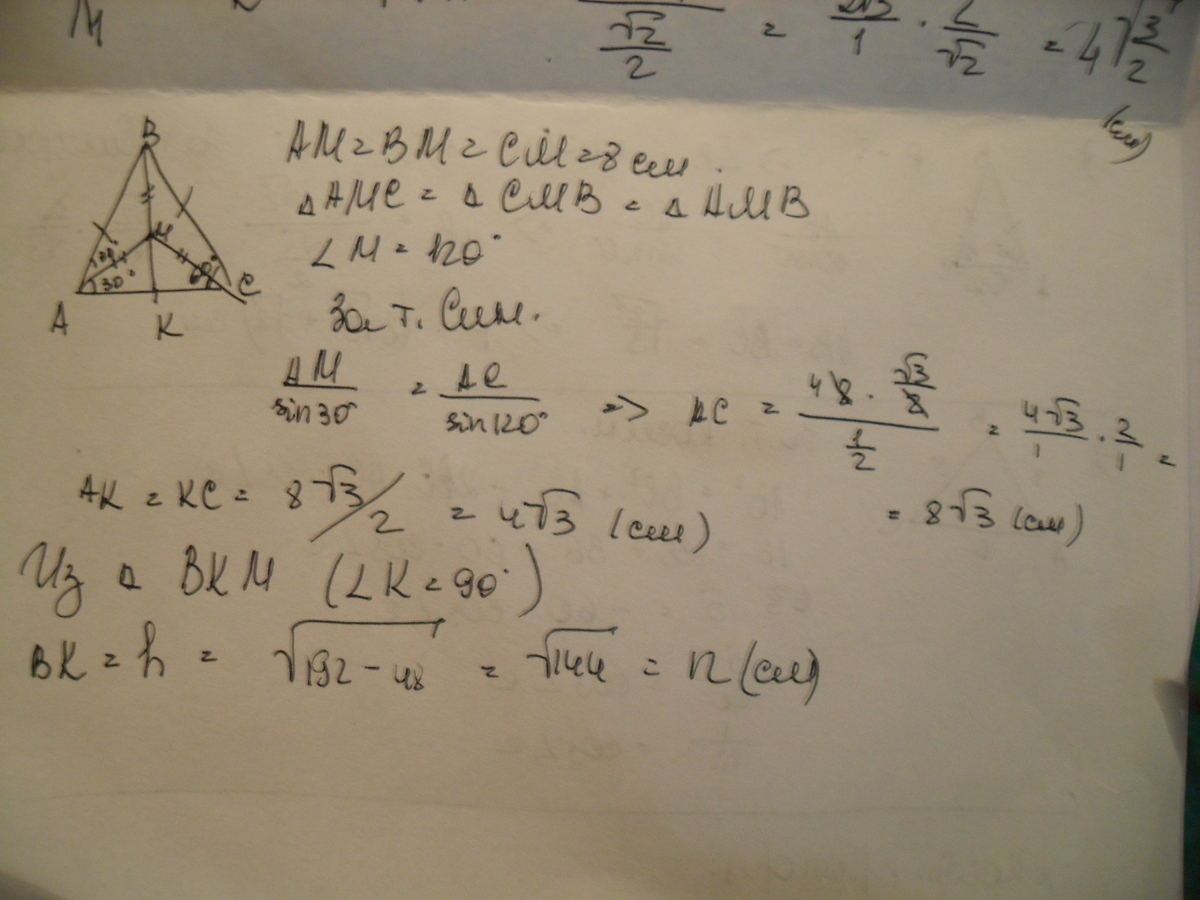 M
√2/2 = /1 · 2/√2 = 4√3/2
(см)
B
M
30°
60°
A
K
C
AM = BM = CM = 8 см.
△AMC = △CMB = △AMB
∠M = 120°
За т. Син.
AM/sin30° = AC/sin120° => AC = (48 · √3/2)/(1/2) = 4√3/1 · 2/1 =
= 8√3 (см)
AK = KC = 8√3/2 = 4√3 (см)
Из △ BKM (∠K = 90°)
BK = h = √192 - 48 = √144 = 12 (см)